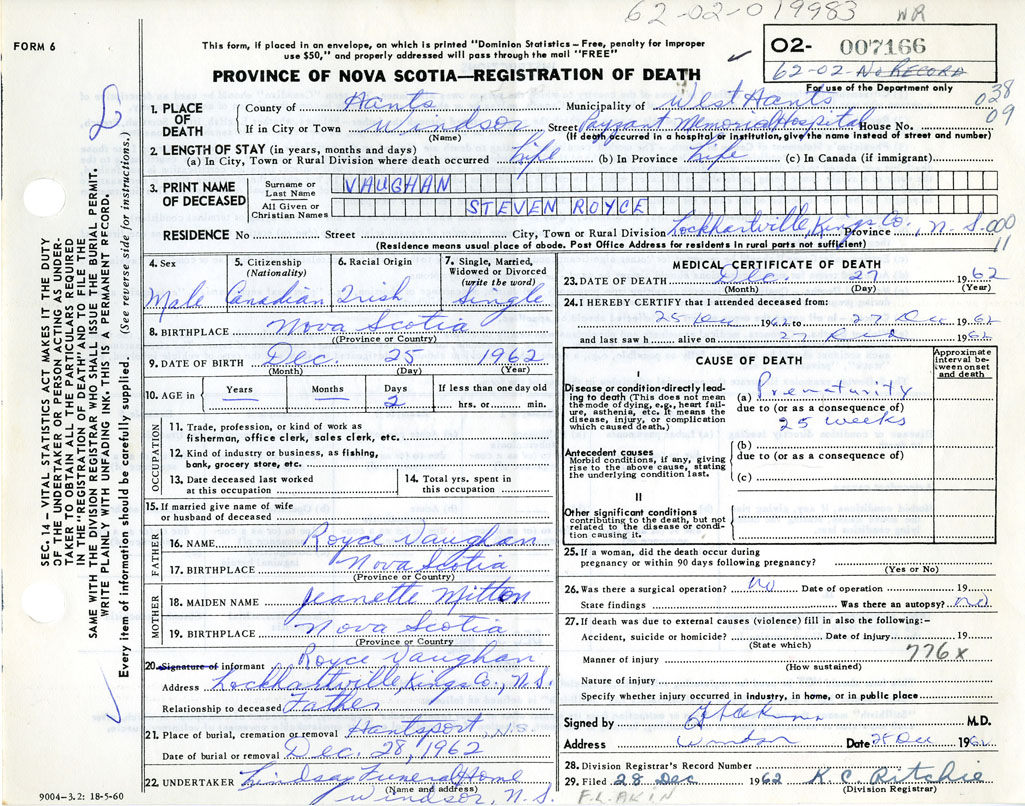 62-02-019983 WR
FORM 6
This form, if placed in an envelope, on which is printed "Dominion Statistics – Free, penalty for improper
use $50," and properly addressed will pass through the mail "FREE"
02- 007166
62-02-No RECORD
For use of the Department only
PROVINCE OF NOVA SCOTIA—REGISTRATION OF DEATH
1. PLACE OF DEATH
County of Hants Municipality of West Hants 038
If in City or Town Windsor Street Payzant Memorial Hospital House No. 09
(Name) (If death occurred in a hospital or institution, give the name instead of street and number)
2. LENGTH OF STAY (in years, months and days)
(a) In City, Town or Rural Division where death occurred Life (b) In Province Life (c) In Canada (if immigrant)
3. PRINT NAME OF DECEASED
Surname or Last Name VAUGHAN
All Given or Christian Names STEVEN ROYCE
RESIDENCE No Street City, Town or Rural Division Lockhartville, Kings Co. Province, N.S. 000
(Residence means usual place of abode. Post Office Address for residents in rural parts not sufficient) 11
4. Sex Male
5. Citizenship (Nationality) Canadian
6. Racial Origin Irish
7. Single, Married, Widowed or Divorced (write the word) Single
8. BIRTHPLACE Nova Scotia
(Province or Country)
9. DATE OF BIRTH Dec. 25 1962
(Month) (Day) (Year)
10. AGE in Years — Months — Days 2 If less than one day old hrs. or min.
OCCUPATION
11. Trade, profession, or kind of work as
fisherman, office clerk, sales clerk, etc.
12. Kind of industry or business, as fishing,
bank, grocery store, etc.
13. Date deceased last worked
at this occupation
14. Total yrs. spent in
this occupation
15. If married give name of wife
or husband of deceased
FATHER
16. NAME Royce Vaughan
17. BIRTHPLACE Nova Scotia
(Province or Country)
MOTHER
18. MAIDEN NAME Jeanette Mitton
19. BIRTHPLACE Nova Scotia
(Province or Country
20. Signature of informant Royce Vaughan
Address Lockhartville, Kings Co., N.S.
Relationship to deceased Father
21. Place of burial, cremation or removal Hantsport, N.S.
Date of burial or removal Dec. 28, 1962
22. UNDERTAKER Lindsay Funeral Home
(Name and address)
Windsor, N.S.
9004–3.2: 18-5-60
MEDICAL CERTIFICATE OF DEATH
23. DATE OF DEATH Dec. 27 1962
(Month) (Day) (Year)
24. I HEREBY CERTIFY that I attended deceased from:
25 Dec 1962 to 27 Dec 1962
and last saw h alive on 27 Dec 1962
CAUSE OF DEATH
Approximate interval between onset and death
I
Disease or condition directly leading to death (This does not mean the mode of dying, e.g., heart failure, asthenia, etc. It means the disease, injury, or complication which caused death.)
(a) Prematurity
due to (or as a consequence of)
25 weeks
Antecedent causes
Morbid conditions, if any, giving rise to the above cause, stating the underlying condition last.
(b)
due to (or as a consequence of)
(c)
II
Other significant conditions
contributing to the death, but not related to the disease or condition causing it.
25. If a woman, did the death occur during
pregnancy or within 90 days following pregnancy?
(Yes or No)
26. Was there a surgical operation? No Date of operation 19
State findings Was there an autopsy? no
27. If death was due to external causes (violence) fill in also the following:–
Accident, suicide or homicide? Date of injury 19
(State which) 776x
Manner of injury
(How sustained)
Nature of injury
Specify whether injury occurred in industry, in home, or in public place
Signed by M.D.
Address Windsor Date 28 Dec 1962
28. Division Registrar's Record Number
29. Filed 28 Dec 1962 K. C. Ritchie
(Division Registrar)
F.L. AKIN
SEC. 14 – VITAL STATISTICS ACT MAKES IT THE DUTY
OF THE UNDERTAKER OR PERSON ACTING AS UNDER-
TAKER TO OBTAIN ALL THE PARTICULARS REQUIRED
IN THE "REGISTRATION OF DEATH" AND TO FILE THE
SAME WITH THE DIVISION REGISTRAR WHO SHALL ISSUE THE BURIAL PERMIT.
WRITE PLAINLY WITH UNFADING INK. THIS IS A PERMANENT RECORD.
Every item of information should be carefully supplied. (See reverse side for instructions.)